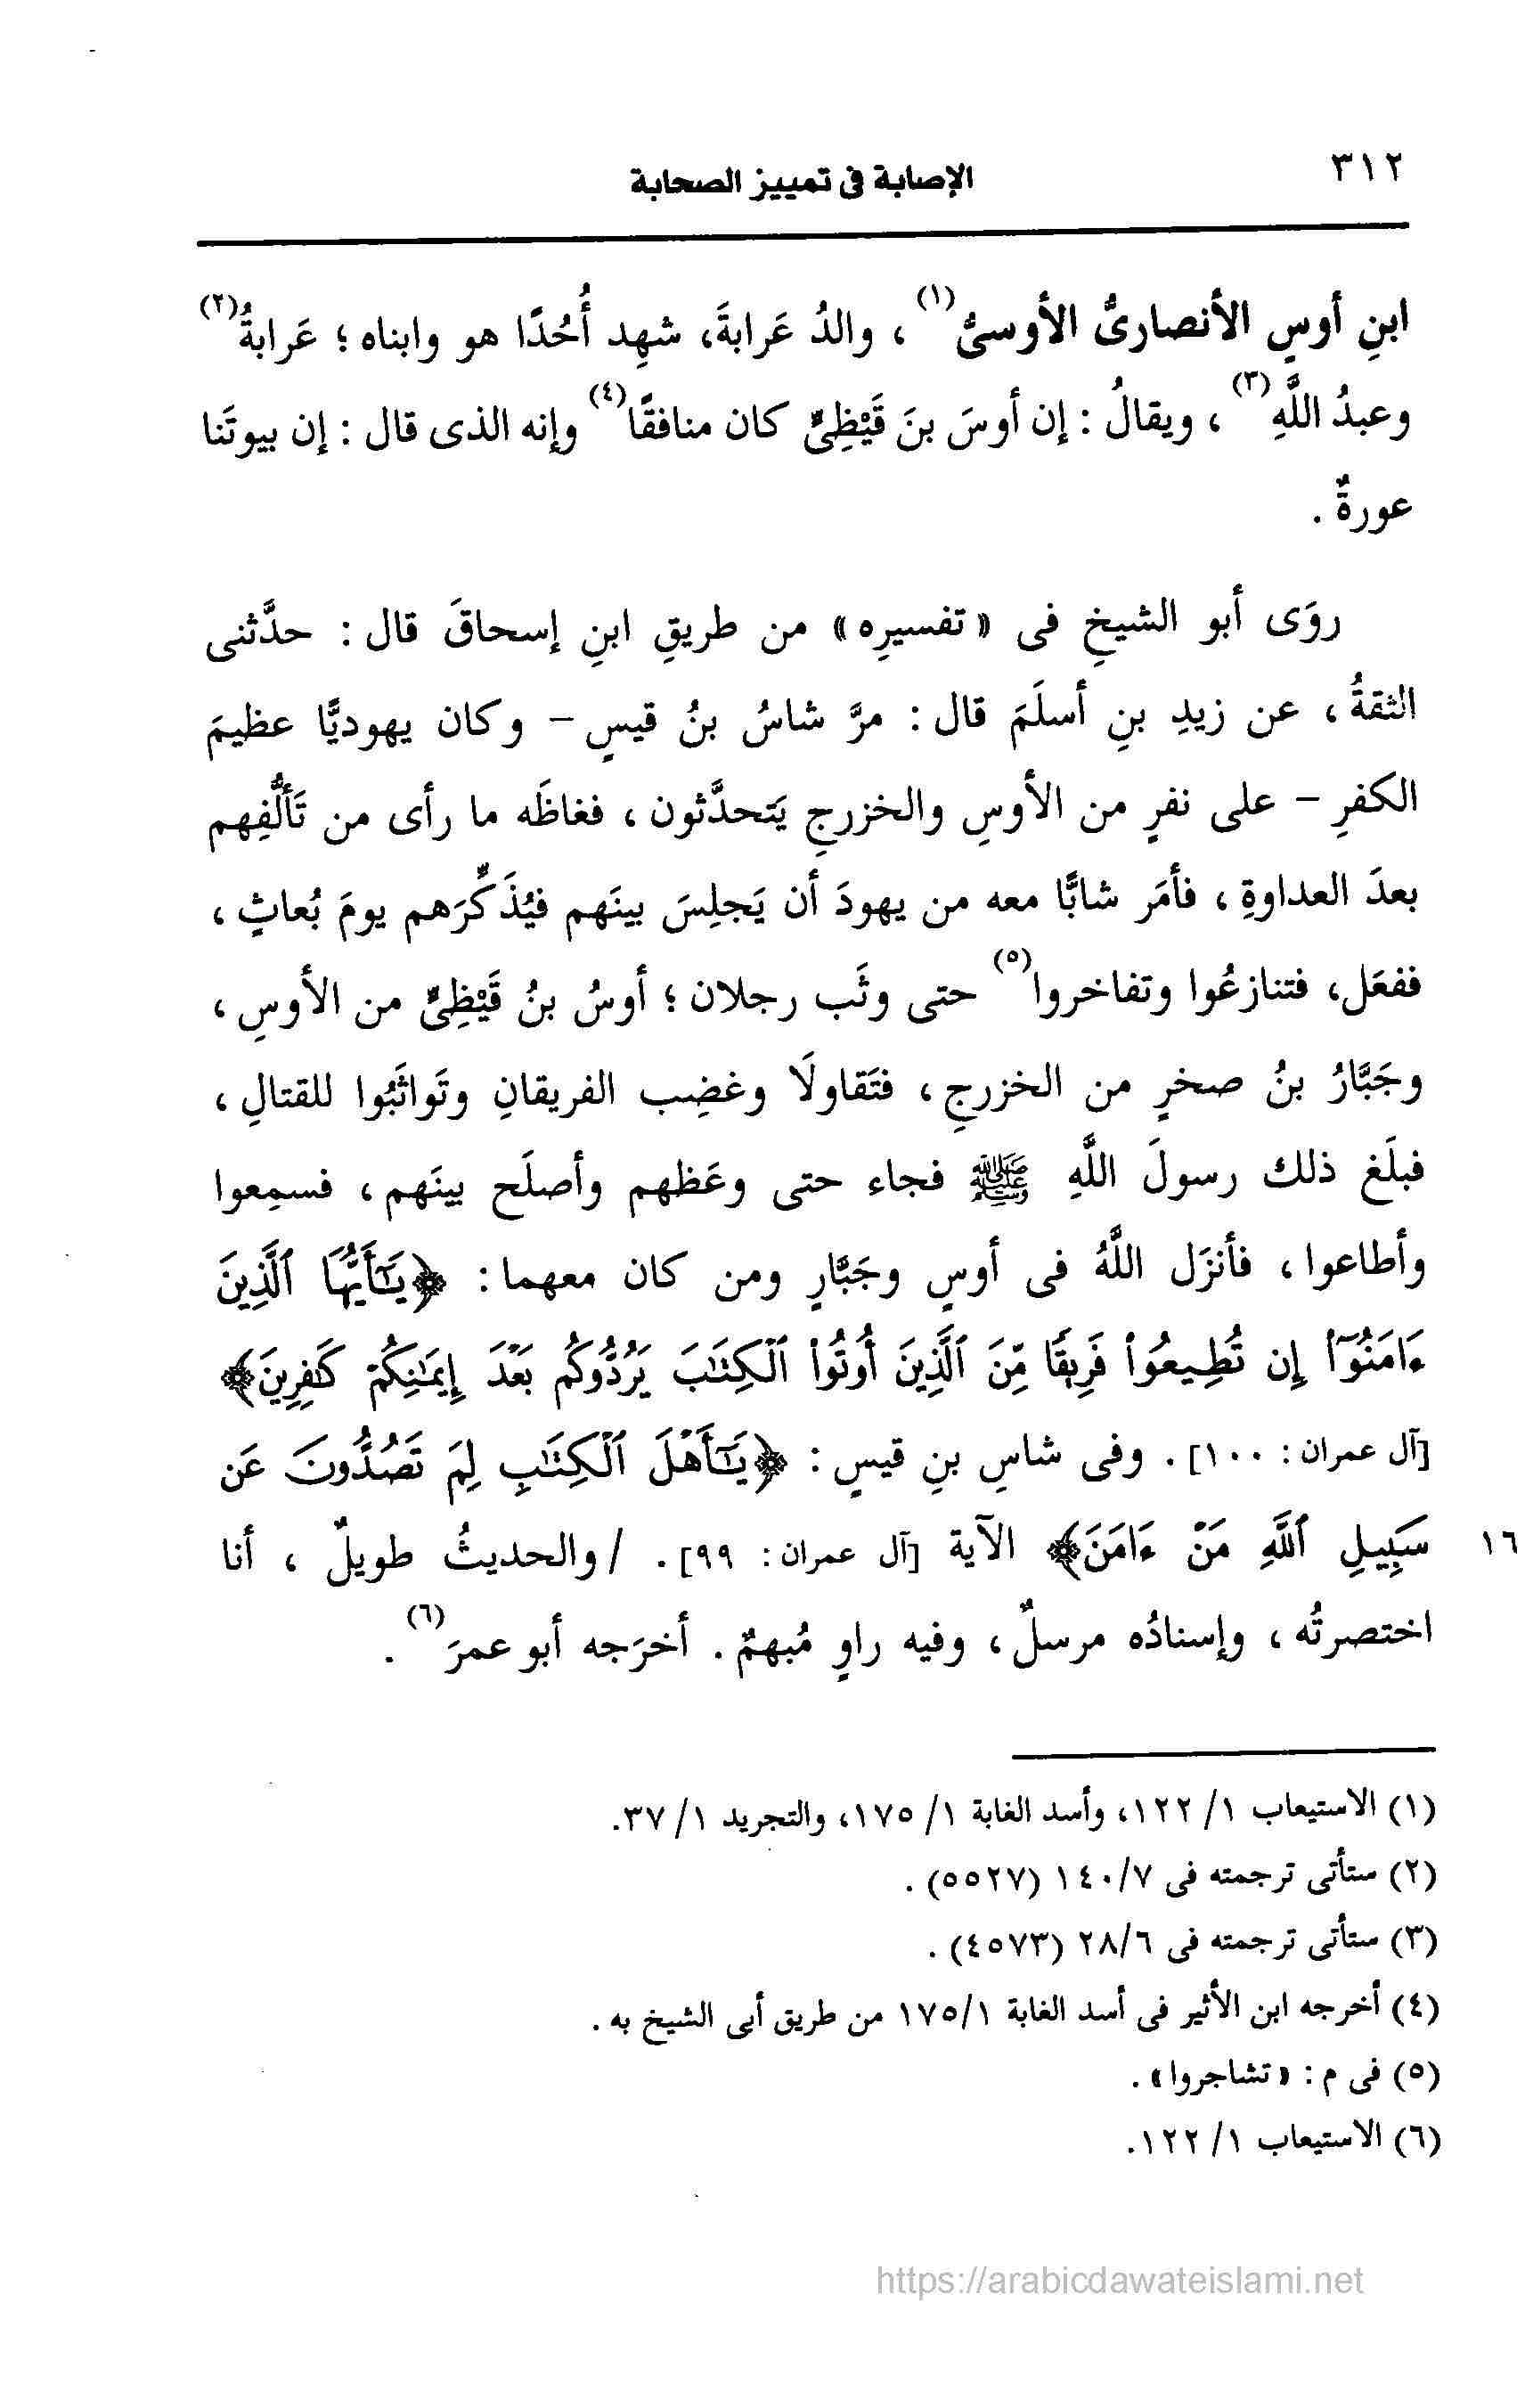 ٣١٢
الإصابة فى تمييز الصحابة
ابنِ أوسٍ الأنصارىُّ الأوسىُّ(١) ، والدُ عَرابةَ، شهِد أُحُدًا هو وابناه ؛ عَرابةُ(٢)
وعبدُ اللَّهِ(٣) ، ويقالُ : إن أوسَ بنَ قَيْظِىٍّ كان منافقًا(٤) وإنه الذى قال : إن بيوتَنا
عورةٌ .
روَى أبو الشيخِ فى «تفسيرِه» من طريقِ ابنِ إسحاقَ قال : حدَّثنى
الثقةُ ، عن زيدِ بنِ أسلَمَ قال : مرَّ شاسُ بنُ قيسٍ – وكان يهوديًّا عظيمَ
الكفرِ – على نفرٍ من الأوسِ والخزرجِ يَتحدَّثون ، فغاظَه ما رأى من تَألُّفِهم
بعدَ العداوةِ ، فأمَر شابًّا معه من يهودَ أن يَجلِسَ بينَهم فيُذَكِّرَهم يومَ بُعاثٍ ،
ففعَل، فتنازعُوا وتفاخروا(٥) حتى وثَب رجلان ؛ أوسُ بنُ قَيْظِىٍّ من الأوسِ ،
وجَبَّارُ بنُ صخرٍ من الخزرجِ ، فتَقاولَا وغضِب الفريقانِ وتَواثَبُوا للقتالِ ،
فبلَغ ذلك رسولَ اللَّهِ ﷺ فجاء حتى وعَظهم وأصلَح بينَهم ، فسمِعوا
وأطاعوا ، فأنزَل اللَّهُ فى أوسٍ وجَبَّارٍ ومن كان معهما : ﴿يَٰٓأَيُّهَا ٱلَّذِينَ
ءَامَنُوٓا۟ إِن تُطِيعُوا۟ فَرِيقًا مِّنَ ٱلَّذِينَ أُوتُوا۟ ٱلْكِتَٰبَ يَرُدُّوكُم بَعْدَ إِيمَٰنِكُمْ كَٰفِرِينَ﴾
[آل عمران : ١٠٠] . وفى شاسِ بنِ قيسٍ : ﴿يَٰٓأَهْلَ ٱلْكِتَٰبِ لِمَ تَصُدُّونَ عَن
سَبِيلِ ٱللَّهِ مَنْ ءَامَنَ﴾ الآية [آل عمران : ٩٩] . /والحديثُ طويلٌ ، أنا
١٦
اختصرتُه ، وإسنادُه مرسلٌ ، وفيه راوٍ مُبهمٌ . أخرَجه أبو عمرَ(٦) .
(١) الاستيعاب ١/ ١٢٢، وأسد الغابة ١/ ١٧٥، والتجريد ١/ ٣٧.
(٢) ستأتى ترجمته فى ١٤٠/٧ (٥٥٢٧) .
(٣) ستأتى ترجمته فى ٢٨/٦ (٤٥٧٣) .
(٤) أخرجه ابن الأثير فى أسد الغابة ١٧٥/١ من طريق أبى الشيخ به .
(٥) فى م : «تشاجروا» .
(٦) الاستيعاب ١/ ١٢٢.
https://arabicdawateislami.net